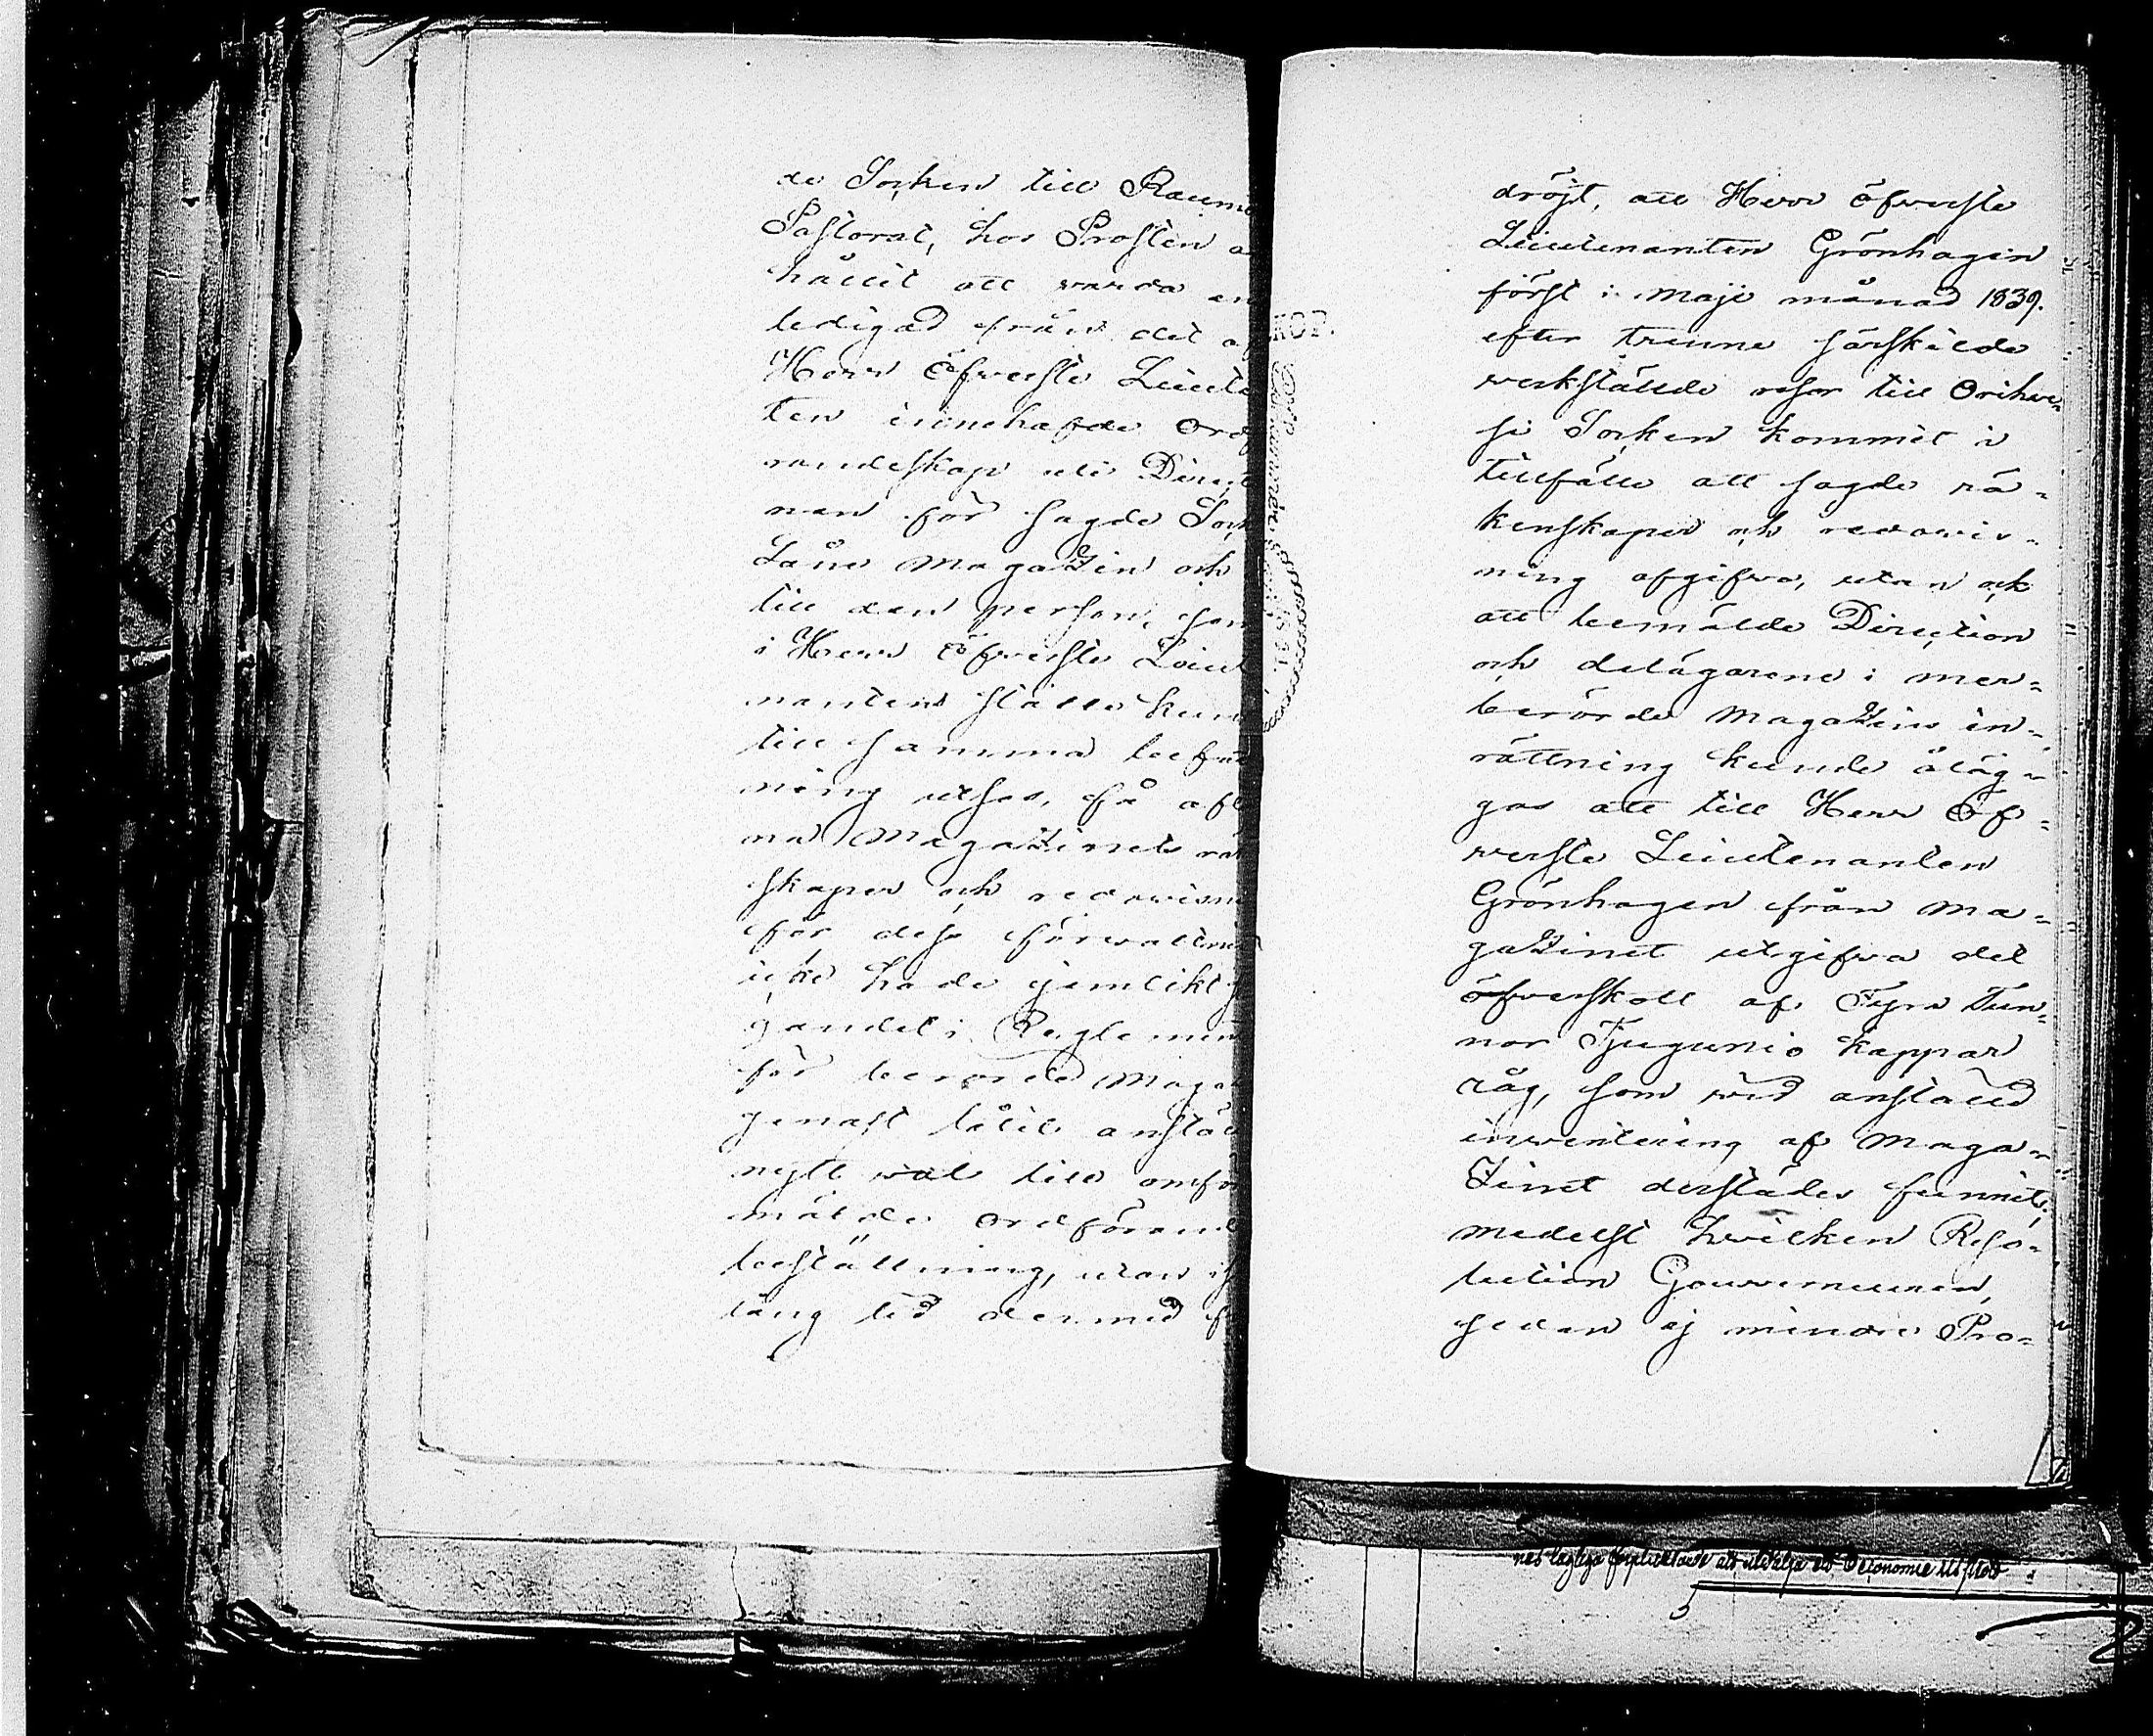 de Socken till Raumo
Pastorat, hos Prosten a
hållit att varda en
ledigad från det af
Herr Öfverste Lieute
ten innehafde Ordf
randeskap uti Direct
nen för sagde Sock
Låne Magazin och
till den person, som
i Herr Öfverste Lieut
nantens ställe kun
till samma befatt
ning utses, få aflem
na Magazinets räk
skaper och redovisni
för dess förvaltnin
icke hade jemlikt
gandet i Reglemen
för berörde Maga
genast låtit anstäl
nytt val till omför
mälde Ordförand
beställning, utan
lång tid dermed f
dröjt, att Herr Öfverste
Lieutenanten Grönhagen
först i Maji månad 1839.
efter trenne särskilde
verkstälde resor till Orihve-
si Socken kommit i
tillfälle att sagde rä-
kenskaper och redovis-
ning afgifva, utan ock
att bemälde Direction
och delägarene i mer-
berörde Magazins in-
rättning kunde åläg-
gas att till Herr Öf-
verste Lieutenanten
Grönhagen från Ma-
gazinet utgifva det
öfverskott af Fyra Tun-
nor Tjugunio kappar
råg, som vid anstäld
inventering af Maga-
zinet derstädes funnits;
medelst hvilken Reso-
lution Gouverneuren,
sedan ej mindre Pro-